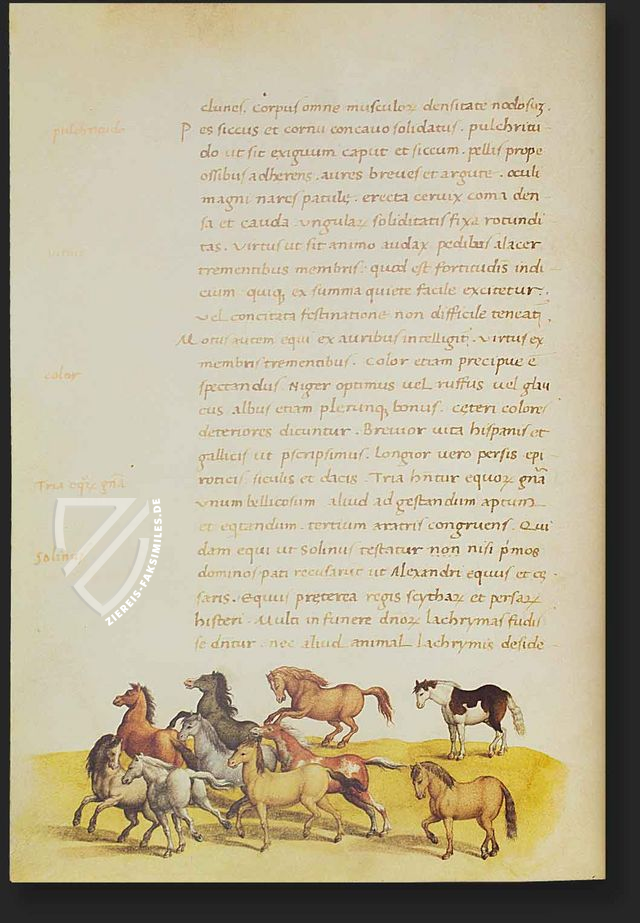 clunes. Corpus omne musculoꝝ densitate nodosuʒ.
pulchritudo
Pes siccus et cornu concavo solidatus. pulchritu
do ut sit exiguum caput et siccum. pellis prope
ossibus adherens. aures breves et argute. oculi
magni nares patule. erecta cervix coma den
sa et cauda. ungulaꝝ soliditatis fixa rotundi
virtus
tas. Virtus ut sit animo audax pedibus alacer
trementibus membris. quod est fortitudis indi
cium quiqꝫ ex summa quiete facile excitetur.
vel concitata festinatione non difficile teneat.
Motus autem equi ex auribus intelligit. virtus ex
membris trementibus. Color etiam precipue ē
color
spectandus. Niger optimus vel ruffus vel glau
cus albus etiam plerunqꝫ bonus. ceteri colores
deteriores dicuntur. Brevior vita hispanis et
gallicis ut pscripsimus. Longior vero persis epi
Tria eqꝝ gnā
roticis siculis et dacis. Tria hntur equoꝝ gnā
unum bellicosum aliud ad gestandum aptum
et eqtandum. tertium aratris congruens. Qui
Solinus
dam equi ut Solinus testatur non nisi pmos
dominos pati recusarūt ut Alexandri equus et ce
saris. Equus preterea regis scythaꝝ et persaꝝ
histeri. Multi in funere dnoꝝ lachrymas fudis
se dntur. nec aliud animal lachrymis deside
ZIEREIS-FAKSIMILES.DE